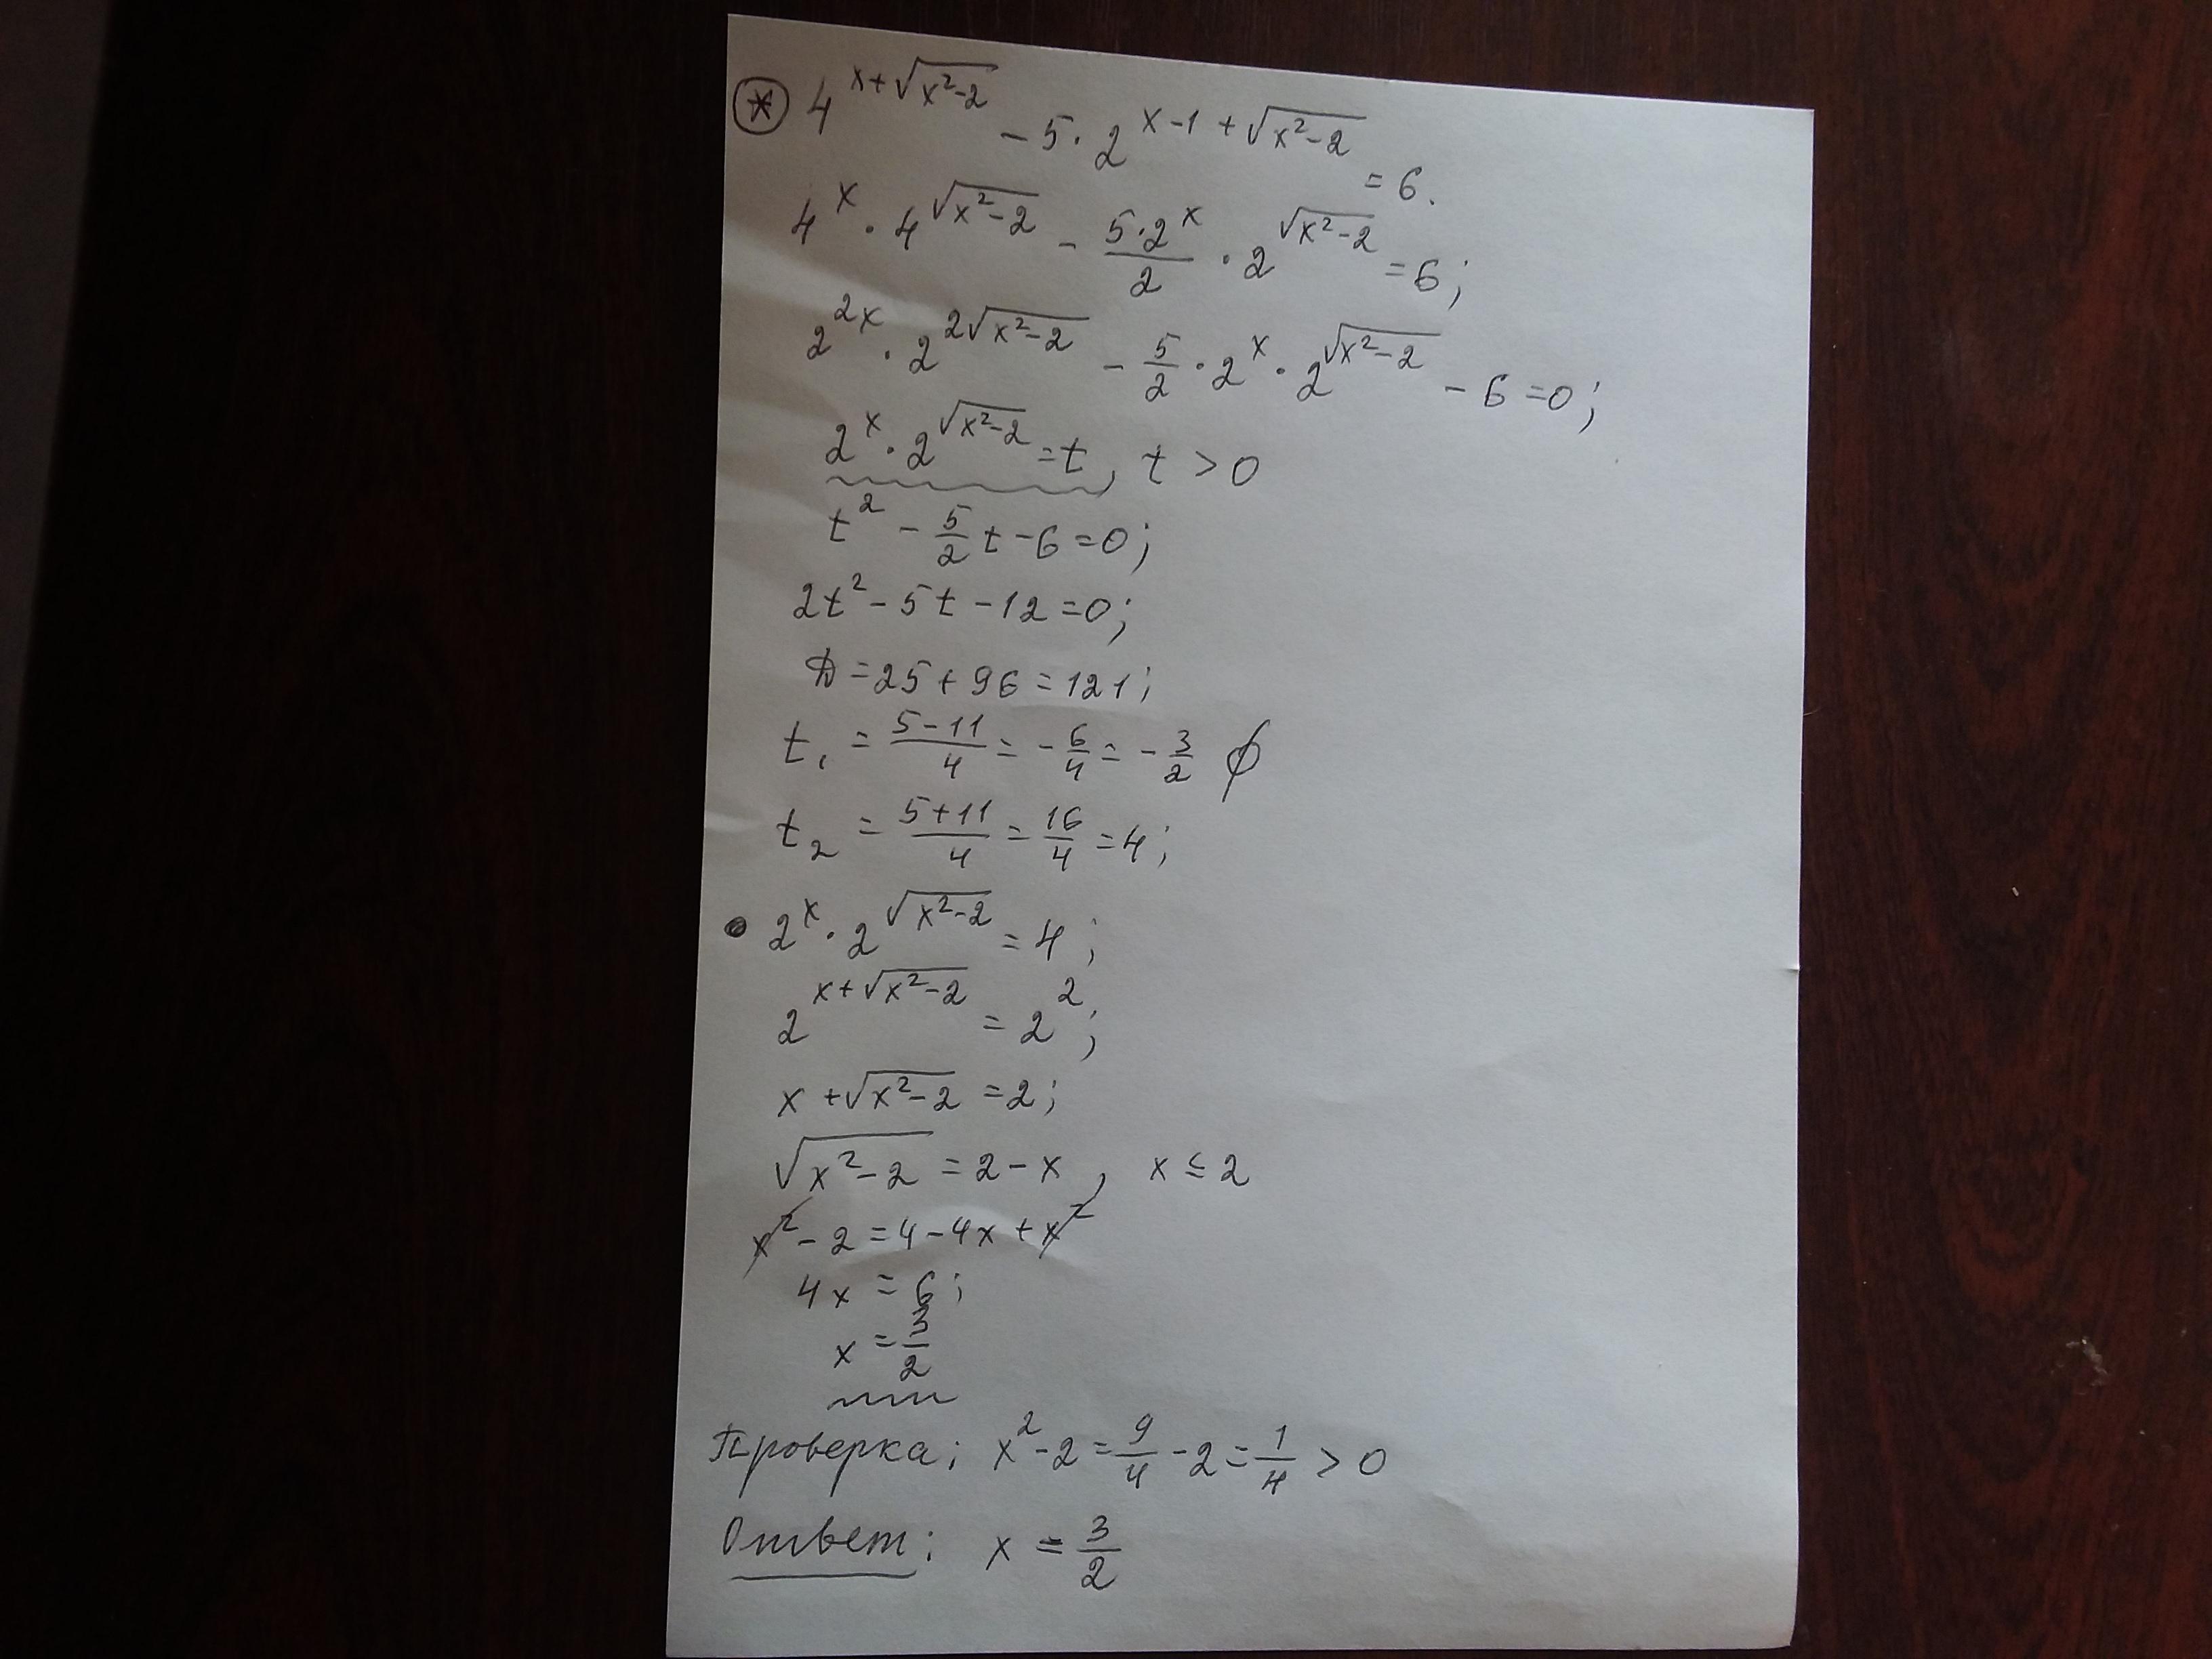 ⊛ 4^{x+√(x²-2)} - 5·2^{x-1+√(x²-2)} = 6.
4^x · 4^{√(x²-2)} - (5·2^x)/2 · 2^{√(x²-2)} = 6;
2^{2x} · 2^{2√(x²-2)} - 5/2 · 2^x · 2^{√(x²-2)} - 6 = 0;
2^x · 2^{√(x²-2)} = t, t > 0
t² - 5/2 t - 6 = 0;
2t² - 5t - 12 = 0;
D = 25 + 96 = 121;
t₁ = (5-11)/4 = -6/4 = -3/2 ∅
t₂ = (5+11)/4 = 16/4 = 4;
• 2^x · 2^{√(x²-2)} = 4;
2^{x+√(x²-2)} = 2²;
x + √(x²-2) = 2;
√(x²-2) = 2 - x, x ≤ 2
x² - 2 = 4 - 4x + x²
4x = 6;
x = 3/2
Проверка: x² - 2 = 9/4 - 2 = 1/4 > 0
Ответ: x = 3/2